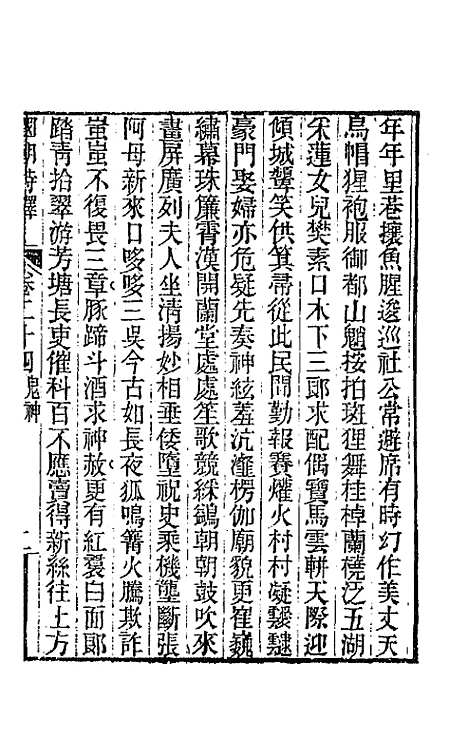 年年里巷攘魚腥逡巡社公常避席有時幻作美丈夫
烏帽猩袍服御都山魈按拍斑狸舞桂棹蘭橈泛五湖
采蓮女兒樊素口水下三郎求配偶寶馬雲軿天際迎
傾城顰笑供箕帚從此民間勤報賽爟火村村凝靉靆
豪門娶婦亦危疑先奏神絃羞沆瀣楞伽廟貌更崔巍
繡幕珠簾霄漢開蘭堂處處笙歌競綵鷁朝朝鼓吹來
畫屏廣列夫人坐淸揚妙相垂倭墮祝史乘機壟斷張
阿母新來口哆哆三吳今古如長夜狐鳴篝火騰欺詐
蚩蚩不復畏三章豚蹄斗酒求神赦更有紅裠白面郎
踏靑拾翠游芳塘長吏催科百不應賣得新絲往上方
國朝詩鐸 卷二十四 鬼神 二